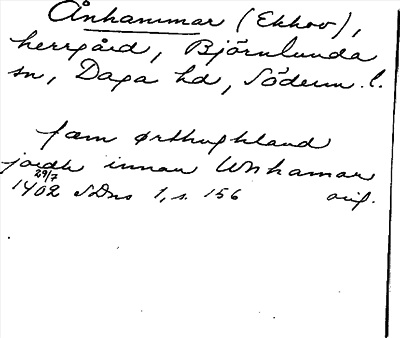 Ånhammar (Ekhov),
herrgård, Björnlunda
sn, Daga hd, Söderm. l.
fæm ørthughland
jordh innan Wnhamar
29/7
1402 SDns 1, s. 156 orig.